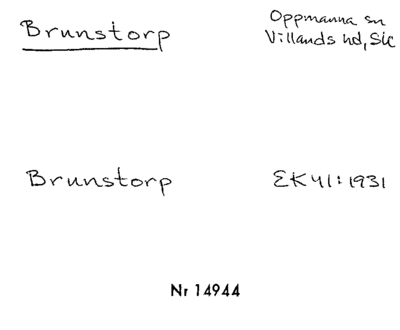 Brunstorp
Oppmanna sn
Villands hd, Sk
Brunstorp
EK 41:1931
Nr 14944